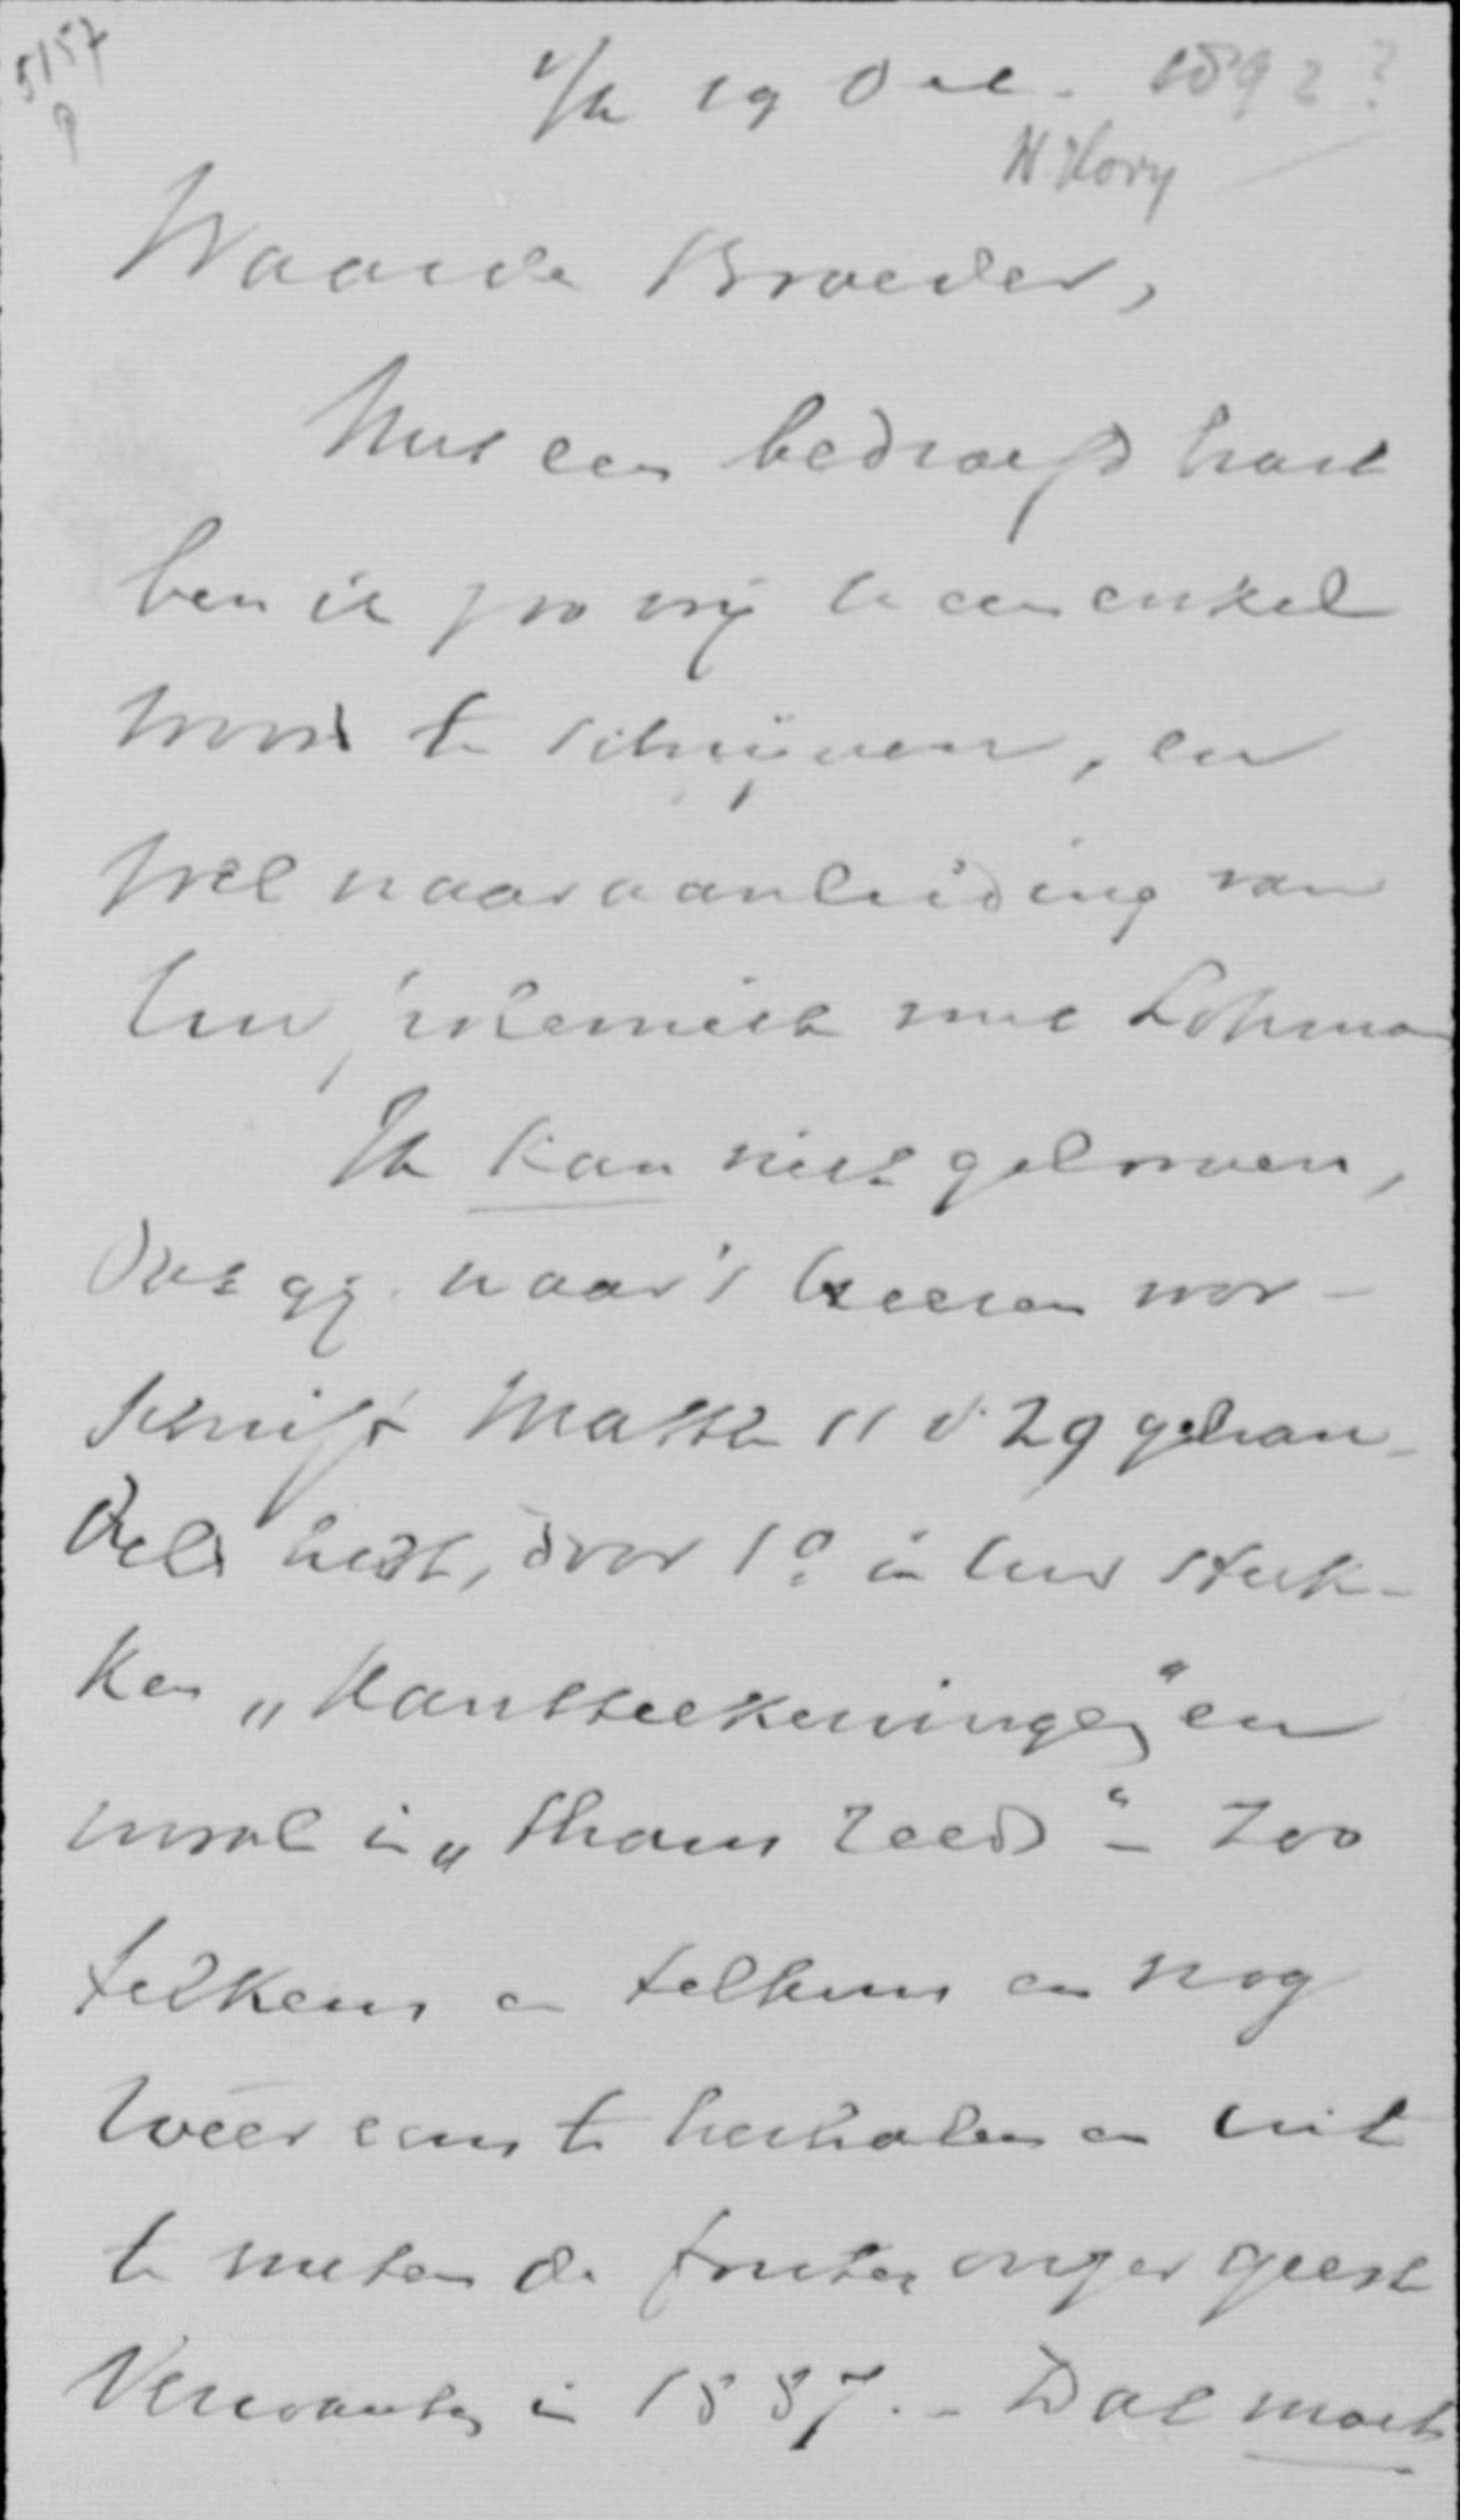 5157
9
1/2 19 Dec. 1892?
W. Hovy
Waarde Broeder,
Met een bedroefd hart
ben ik zoo vrij U een enkel
woord te schrijven, en
wel naar aanleiding van
Uw polemiek met Lohman
Ik kan niet gelooven,
dat gij naar 's Heeren voor-
schrift Matth 11 v. 29 gehan-
deld hebt, door 1o in Uw stuk-
ken „Kantteekeningen" en
vooral in „Thans reeds" - zoo
telkens en telkens en nog
wéér eens te herhalen en uit
te meten de fouten onzer geest
verwanten in 1887. - Dat moet